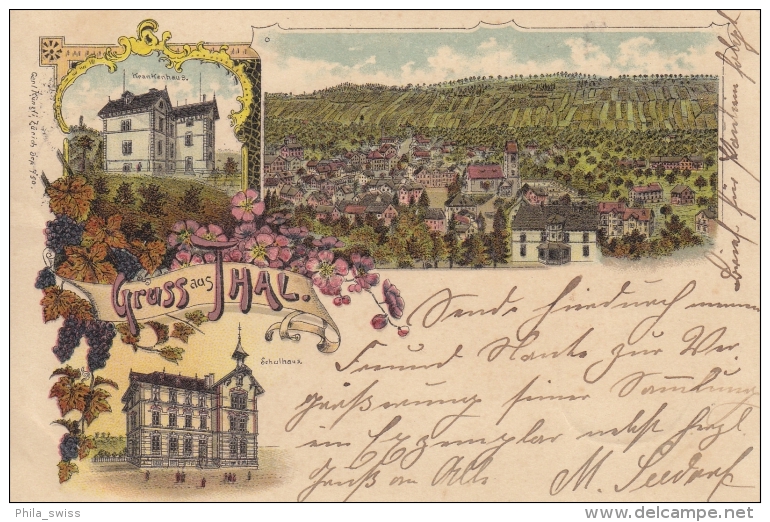 Krankenhaus.
Carl Künzli, Zürich. Dep. 4750.
Gruss aus THAL.
Schulhaus
Sende hiedurch meinem
Freund Hanks zur Ver-
größerung seiner Sammlung
ein Exzemplar nebst herzl.
Gruß an Alle M. Seedorf
für
Phila_swiss
www.delcampe.net